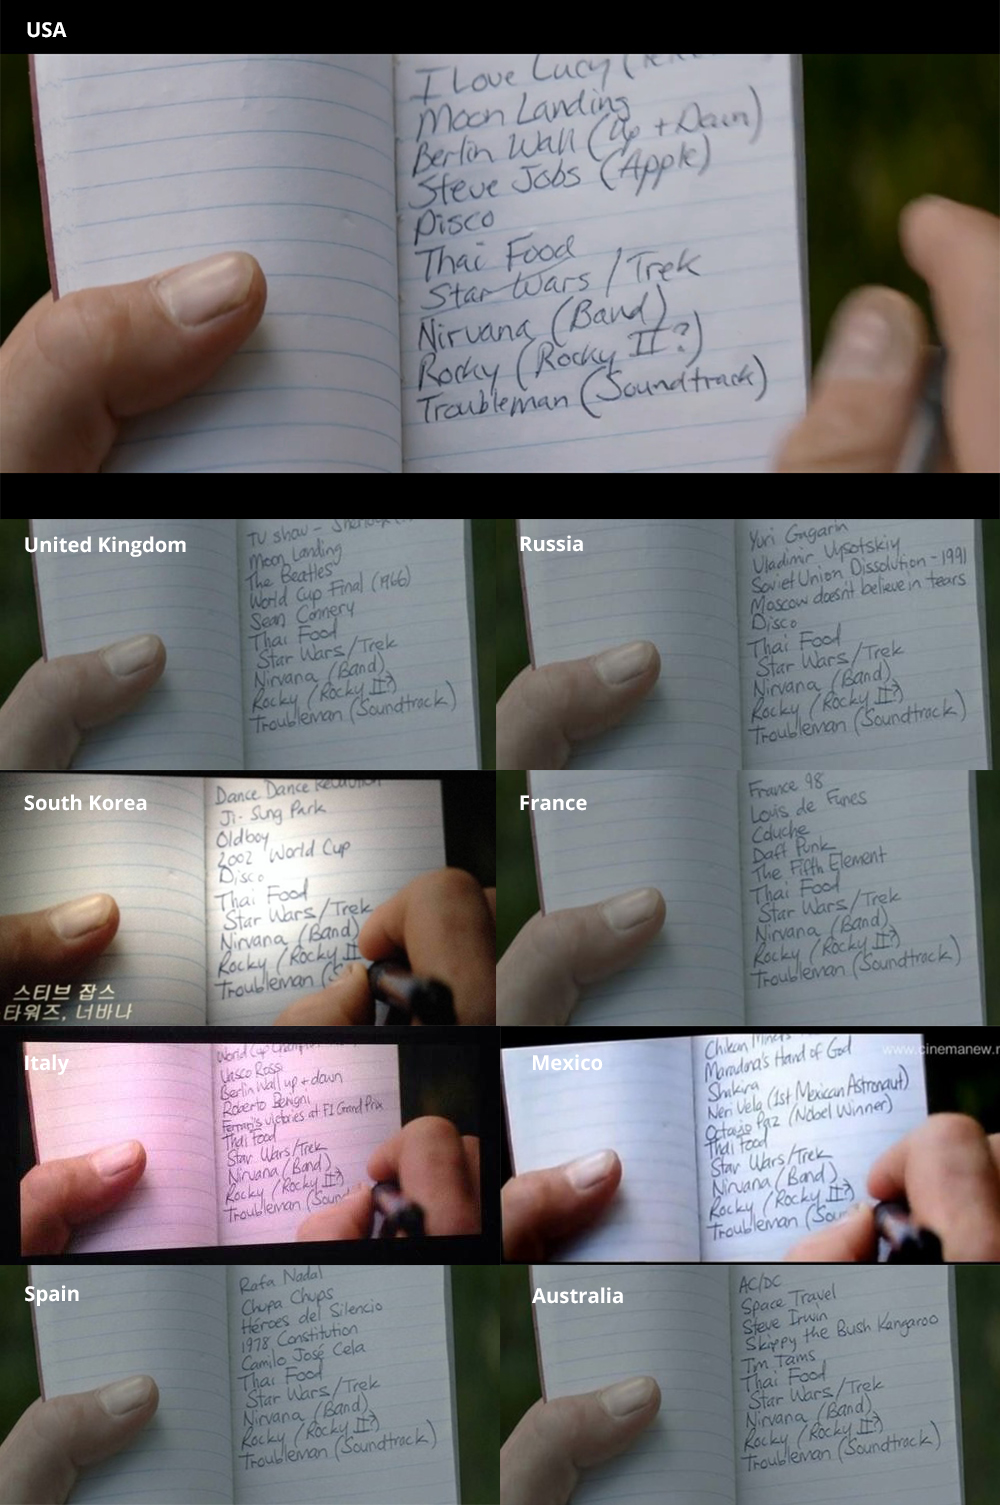 USA
I Love Lucy
Moon Landing
Berlin Wall (Up + Down)
Steve Jobs (Apple)
Disco
Thai Food
Star Wars / Trek
Nirvana (Band)
Rocky (Rocky II?)
Troubleman (Soundtrack)
United Kingdom
TV show -
Moon Landing
The Beatles
World Cup Final (1966)
Sean Connery
Thai Food
Star Wars/Trek
Nirvana (Band)
Rocky (Rocky II?)
Troubleman (Soundtrack)
Russia
Yuri Gagarin
Vladimir Vysotskiy
Soviet Union Dissolution - 1991
Moscow doesn't believe in tears
Disco
Thai Food
Star Wars/Trek
Nirvana (Band)
Rocky (Rocky II?)
Troubleman (Soundtrack)
South Korea
Dance Dance Revolution
Ji-Sung Park
Oldboy
2002 World Cup
Disco
Thai Food
Star Wars/Trek
Nirvana (Band)
Rocky (Rocky II
Troubleman (S
스티브 잡스
타워즈, 너바나
France
France 98
Louis de Funes
Coluche
Daft Punk
The Fifth Element
Thai Food
Star Wars/Trek
Nirvana (Band)
Rocky (Rocky II?)
Troubleman (Soundtrack)
Italy
World Cup
Vasco Rossi
Berlin Wall up + down
Roberto Benigni
Ferrari's victories at F1 Grand Prix
Thai Food
Star Wars/Trek
Nirvana (Band)
Rocky (Rocky II?)
Troubleman (Sound
Mexico
www.cinemanew.r
Chilean Miners
Maradona's Hand of God
Shakira
Neri Vela (1st Mexican Astronaut)
Octavio Paz (Nobel Winner)
Thai food
Star Wars/Trek
Nirvana (Band)
Rocky (Rocky II?)
Troubleman (Sou
Spain
Rafa Nadal
Chupa Chups
Héroes del Silencio
1978 Constitution
Camilo José Cela
Thai Food
Star Wars/Trek
Nirvana (Band)
Rocky (Rocky II?)
Troubleman (Soundtrack)
Australia
AC/DC
Space Travel
Steve Irwin
Skippy the Bush Kangaroo
Tim Tams
Thai Food
Star Wars/Trek
Nirvana (Band)
Rocky (Rocky II?)
Troubleman (Soundtrack)